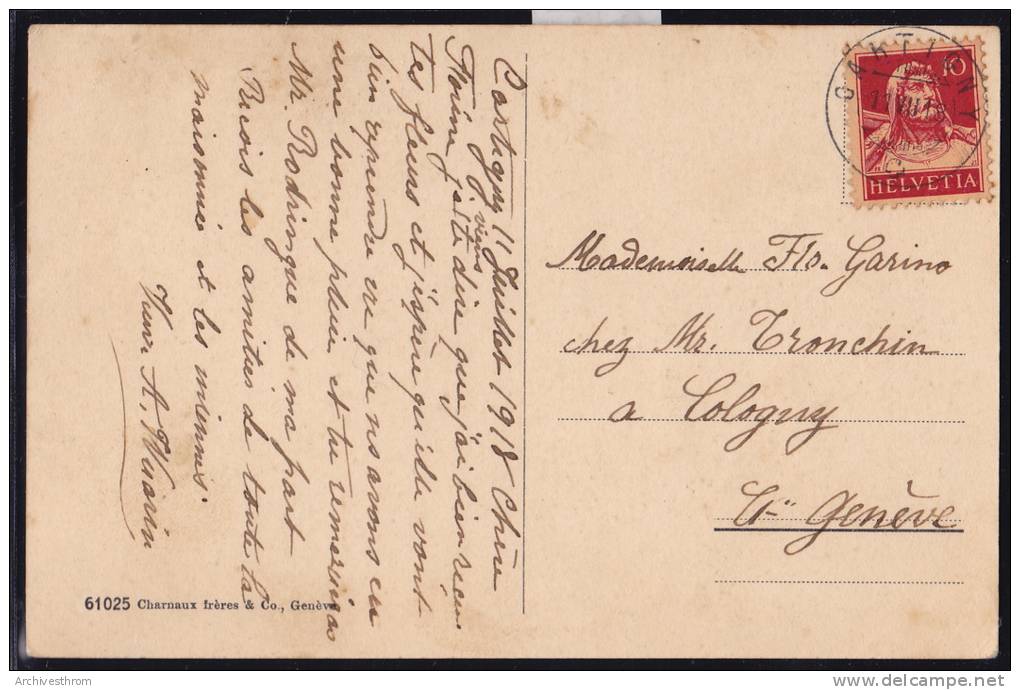 Cartigny 11 Juillet 1918 Chère
Florine je viens te dire que j'ai bien reçu
tes fleurs et j'espère qu'elle vont
bien reprendre vu que nous avons eu
une bonne pluie et tu remercieras
Mr. Rodringue de ma part
Reçois les amitiés de toute la
maisonnée et les miennes.
A. Wuarin
61025 Charnaux frères & Co., Genève
CARTIGNY
11 VII 18
10
HELVETIA
Mademoiselle Flo. Garino
chez Mr. Tronchin
a Cologny
Ct. Genève
Archivesthrom
delcampe.net